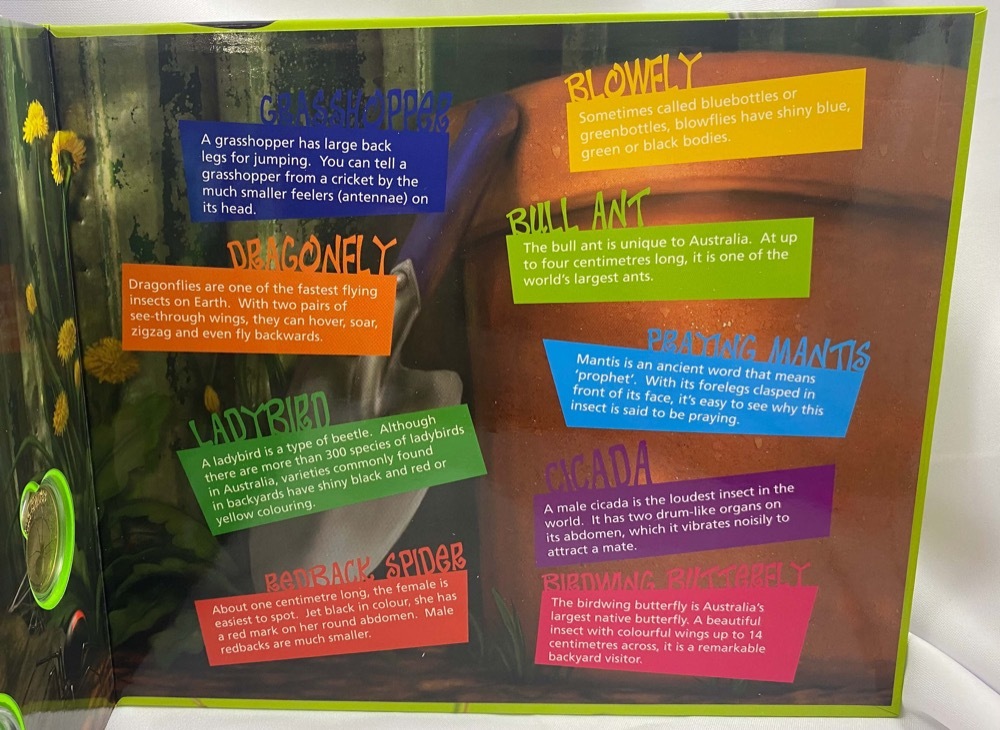 GRASSHOPPER
A grasshopper has large back
legs for jumping. You can tell a
grasshopper from a cricket by the
much smaller feelers (antennae) on
its head.
DRAGONFLY
Dragonflies are one of the fastest flying
insects on Earth. With two pairs of
see-through wings, they can hover, soar,
zigzag and even fly backwards.
LADYBIRD
A ladybird is a type of beetle. Although
there are more than 300 species of ladybirds
in Australia, varieties commonly found
in backyards have shiny black and red or
yellow colouring.
REDBACK SPIDER
About one centimetre long, the female is
easiest to spot. Jet black in colour, she has
a red mark on her round abdomen. Male
redbacks are much smaller.
BLOWFLY
Sometimes called bluebottles or
greenbottles, blowflies have shiny blue,
green or black bodies.
BULL ANT
The bull ant is unique to Australia. At up
to four centimetres long, it is one of the
world's largest ants.
PRAYING MANTIS
Mantis is an ancient word that means
'prophet'. With its forelegs clasped in
front of its face, it's easy to see why this
insect is said to be praying.
CICADA
A male cicada is the loudest insect in the
world. It has two drum-like organs on
its abdomen, which it vibrates noisily to
attract a mate.
BIRDWING BUTTERFLY
The birdwing butterfly is Australia's
largest native butterfly. A beautiful
insect with colourful wings up to 14
centimetres across, it is a remarkable
backyard visitor.